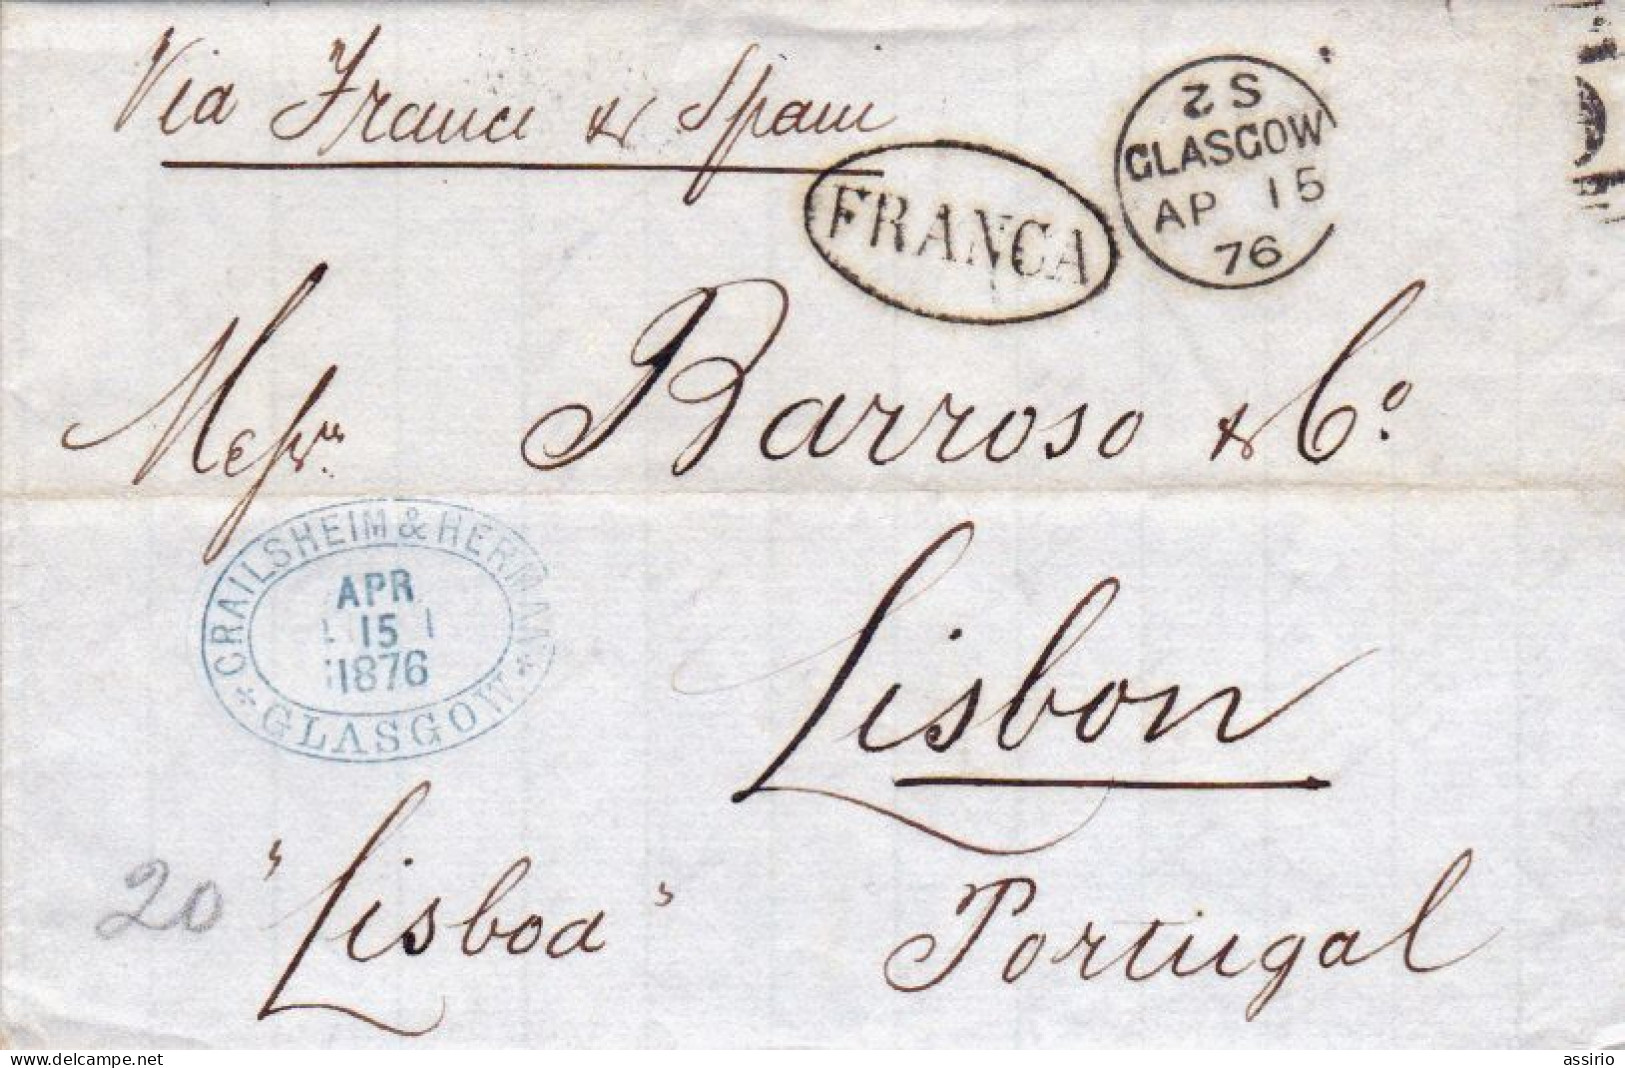 Via France & Spain
FRANCA
2 S
GLASGOW
AP 15
76
Messrs. Barroso & Co.
CRAILSHEIM & HERMAN
APR
15
1876
* GLASGOW *
Lisbon
20
"Lisboa"
Portugal
www.delcampe.net
assirio